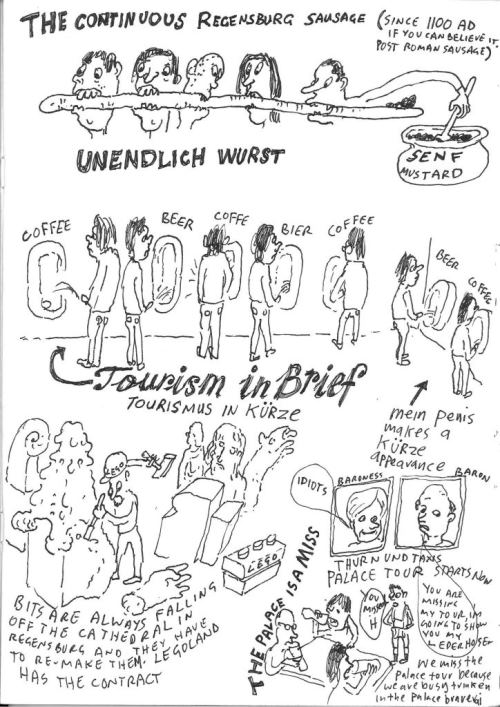 THE CONTINUOUS REGENSBURG SAUSAGE (SINCE 1100 AD
IF YOU CAN BELIEVE IT.
POST ROMAN SAUSAGE)
UNENDLICH WURST
SENF
MUSTARD
COFFEE
BEER
COFFE
BIER
COFFEE
BEER
COFFEE
Tourism in Brief
TOURISMUS IN KÜRZE
mein penis
makes a
KÜRZE
appearance
LEGO
LEGO
BITS ARE ALWAYS FALLING
OFF THE CATHEDRAL IN
REGENSBURG AND THEY HAVE
TO RE-MAKE THEM. LEGOLAND
HAS THE CONTRACT
THE PALACE IS A MISS
IDIOTS
BARONESS
BARON
THURN UND TAXIS
PALACE TOUR STARTS NOW
YOU
MISS
H
YOU ARE
MISSING
MY TOUR, IM
GOING TO SHOW
YOU MY
LEDERHOSE
We miss the
Palace tour because
we are busy trinken
in the Palace